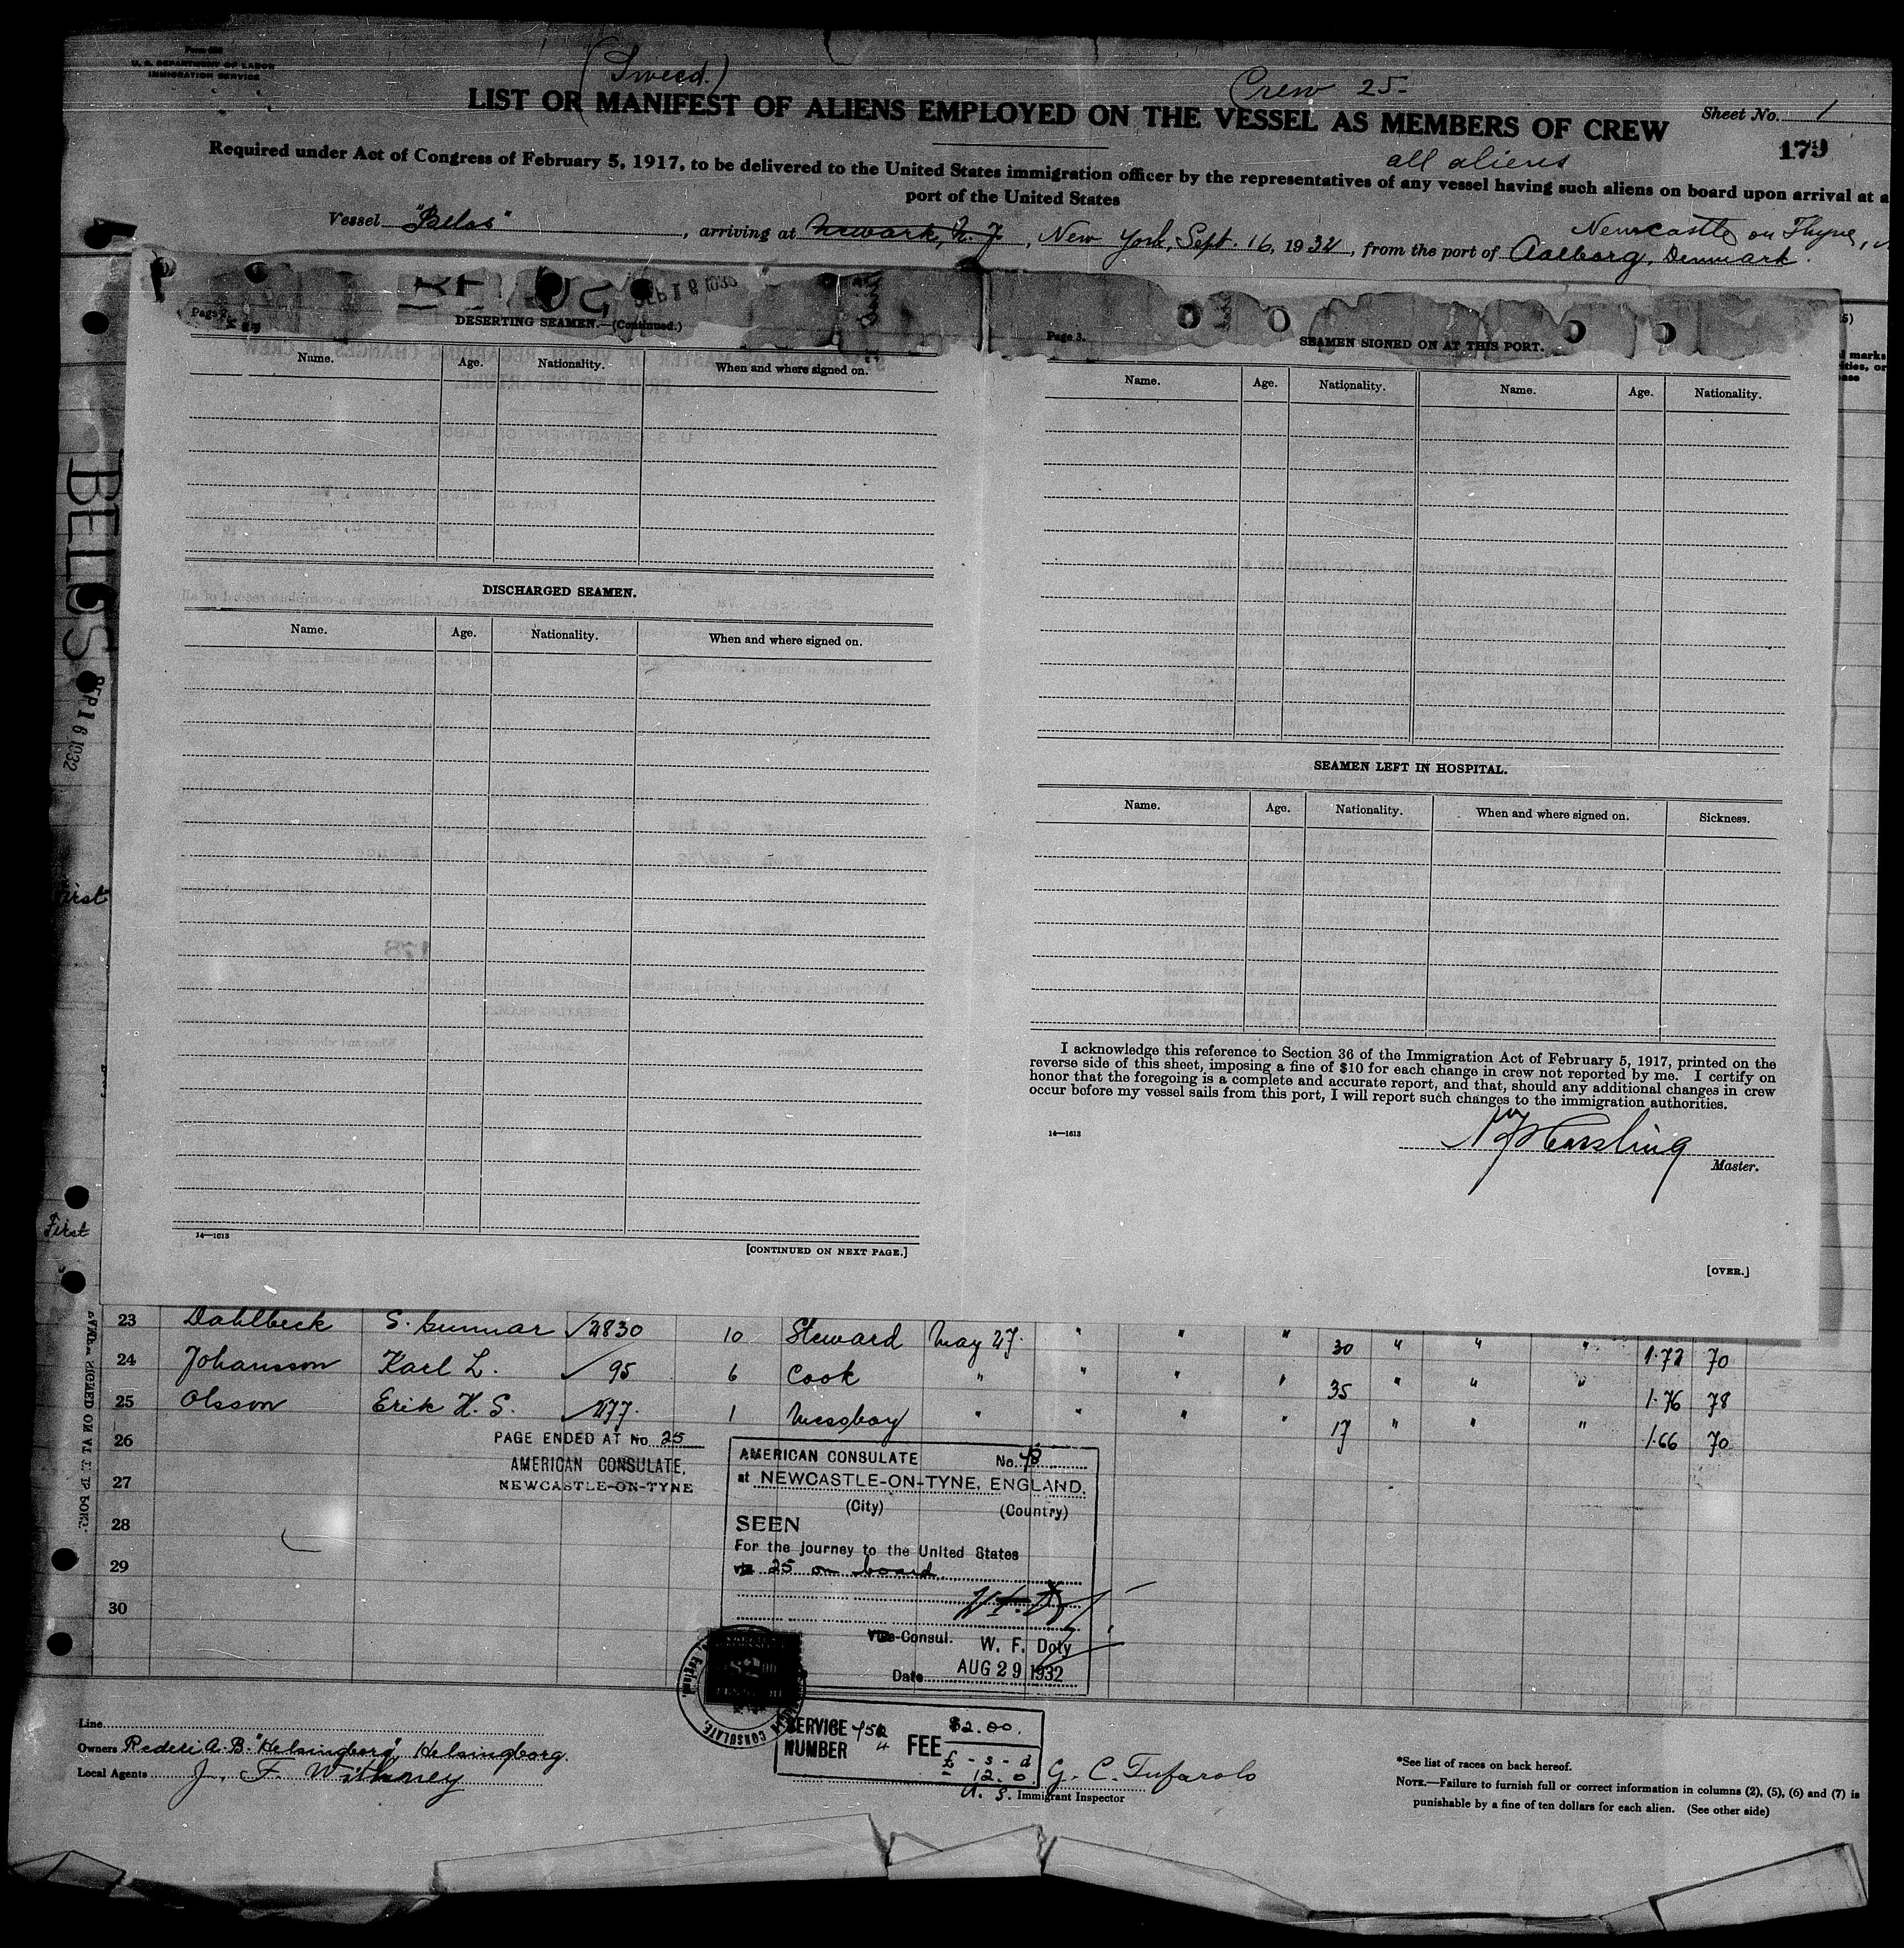 U. S. DEPARTMENT OF LABOR
IMMIGRATION SERVICE
(Swed.)
Crew 25-
LIST OR MANIFEST OF ALIENS EMPLOYED ON THE VESSEL AS MEMBERS OF CREW
Sheet No. 1
179
all aliens
Required under Act of Congress of February 5, 1917, to be delivered to the United States immigration officer by the representatives of any vessel having such aliens on board upon arrival at a
port of the United States
Newcastle on Thyne,
Vessel "Belos", arriving at Newark, N. J, New York, Sept. 16, 1932, from the port of Aalborg, Denmark.
BELOS
SEP 16 1932
First
First
Page 2.
DESERTING SEAMEN.—(Continued.)
Name. Age. Nationality. When and where signed on.
DISCHARGED SEAMEN.
Name. Age. Nationality. When and where signed on.
14—1613
[CONTINUED ON NEXT PAGE.]
Page 3.
SEAMEN SIGNED ON AT THIS PORT.
Name. Age. Nationality. Name. Age. Nationality.
SEAMEN LEFT IN HOSPITAL.
Name. Age. Nationality. When and where signed on. Sickness.
I acknowledge this reference to Section 36 of the Immigration Act of February 5, 1917, printed on the
reverse side of this sheet, imposing a fine of $10 for each change in crew not reported by me. I certify on
honor that the foregoing is a complete and accurate report, and that, should any additional changes in crew
occur before my vessel sails from this port, I will report such changes to the immigration authorities.
14—1613
Master.
[OVER.]
23 Dahlbeck S. Gunnar √2830 10 Steward May 27. " " " 30 " " " 1.72 70
24 Johansson Karl L. √ 95 6 Cook " " " " 35 " " " 1.76 78
25 Olsson Erik H. S. √277. 1 Messboy " " " " 17 " " " 1.66 70
26
27
28
29
30
PAGE ENDED AT No. 25
AMERICAN CONSULATE,
NEWCASTLE-ON-TYNE
AMERICAN CONSULATE No. 48
at NEWCASTLE-ON-TYNE, ENGLAND.
(City) (Country)
SEEN
For the journey to the United States
via 25 on board
Vice-Consul. W. F. Doty
Date AUG 29 1932
SERVICE NUMBER FEE $2.00.
£ - s - d
- 12. 0
Line
Owners Rederi A. B. "Helsingborg", Helsingborg.
Local Agents J. F. Whitney
G. C. Tufarolo
U. S. Immigrant Inspector
*See list of races on back hereof.
NOTE.—Failure to furnish full or correct information in columns (2), (5), (6) and (7) is
punishable by a fine of ten dollars for each alien. (See other side)